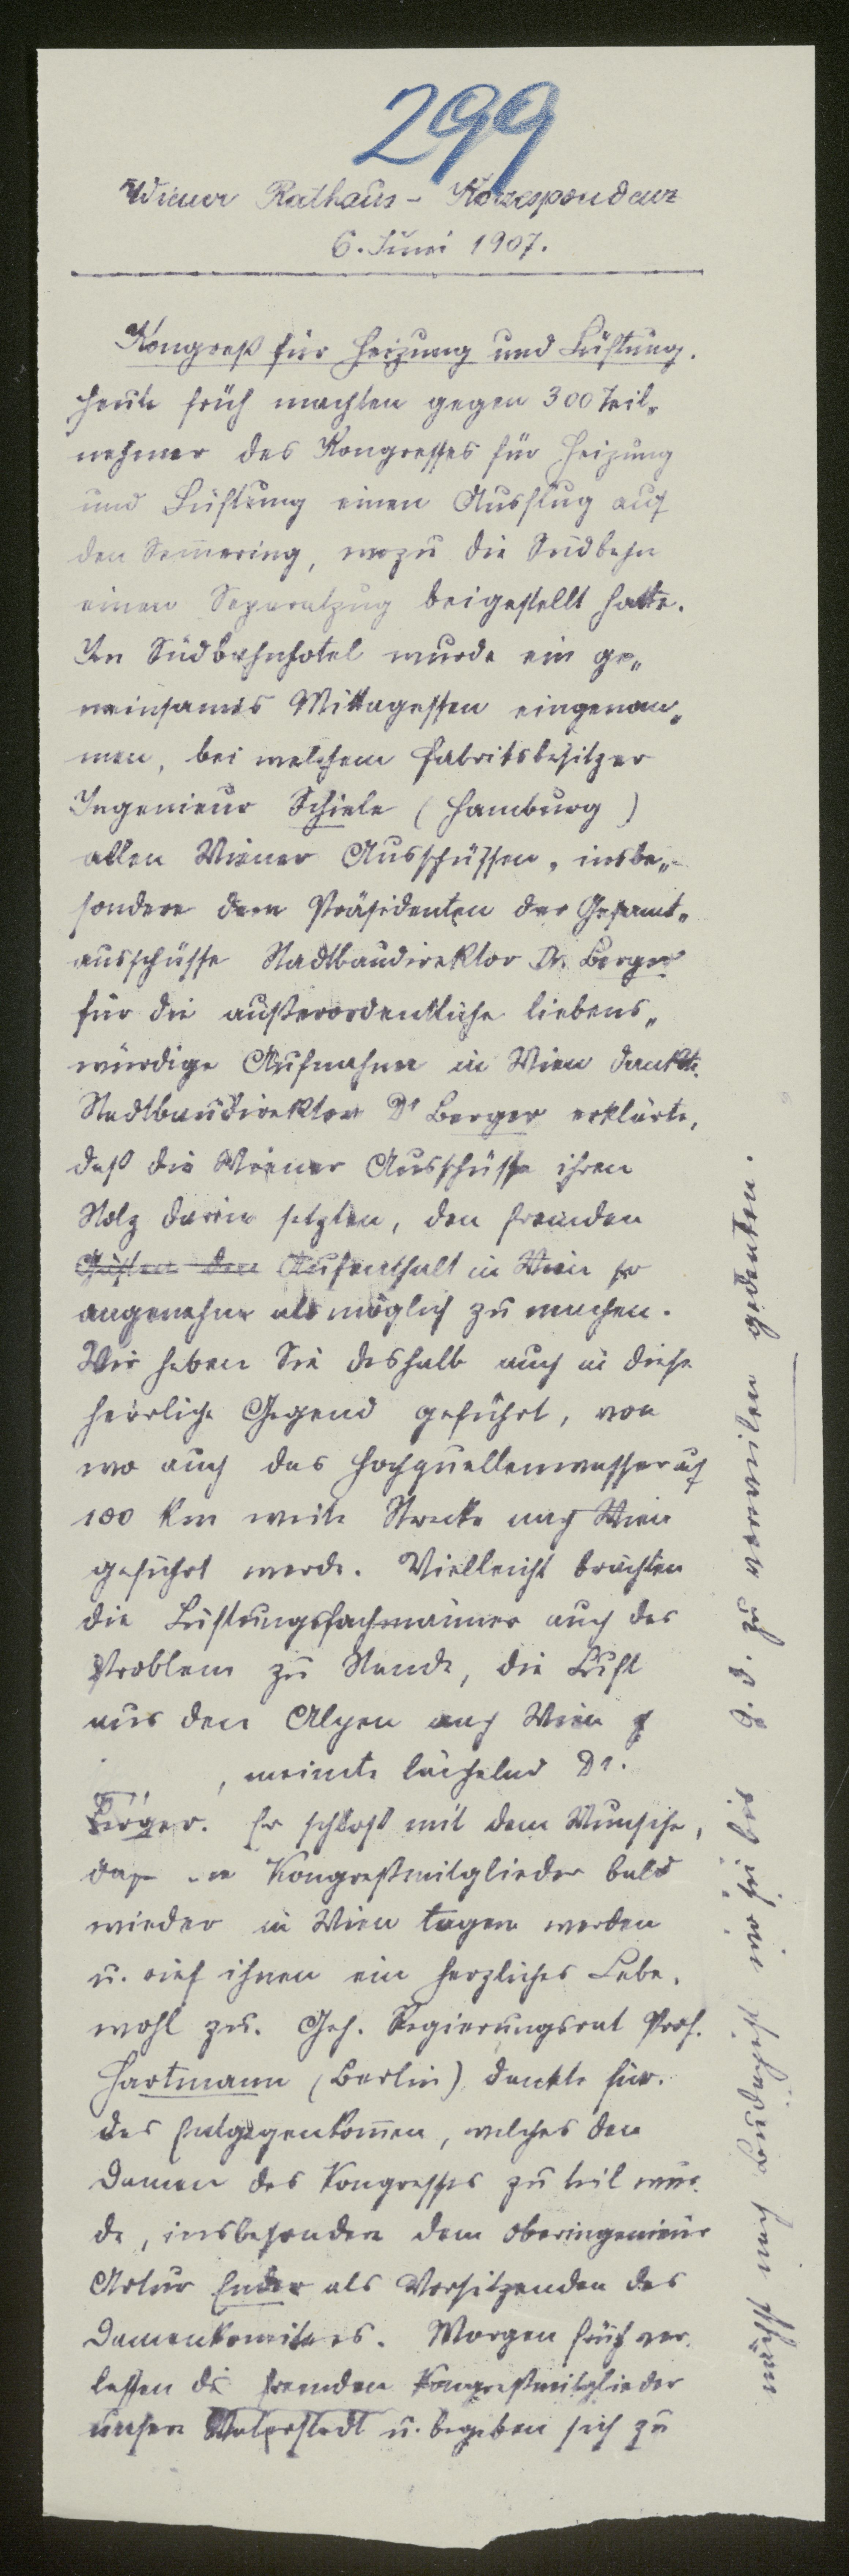 299
Wiener Rathaus-Korrespondenz
6. Juni 1907.
Kongreß für Heizung und Lüftung.
Heute früh machten gegen 300 Teil„
nehmer des Kongresses für Heizung
und Lüftung einen Ausflug auf
den Semmering, wozu die Südbahn
einen Separatzug beigestellt hatte.
Im Südbahnhotel wurde ein ge„
meinsames Mittagessen eingenom„
men, bei welchem Fabriksbesitzer
Ingenieur Schiele (Hamburg)
allen Wiener Ausschüssen, insbe„
sondere dem Präsidenten der Gesamt„
ausschüsse Stadtbaudirektor Dr. Berger
für die außerordentliche liebens„
würdige Aufnahme in Wien dankte.
Stadtbaudirektor Dr Berger erklärte,
daß die Wiener Ausschüsse ihren
Stolz darin setzten, den fremden
Gästen den Aufenthalt in Wien so
angenehm als möglich zu machen.
Wir haben Sie deshalb auch in diese
herrliche Gegend geführt, von
wo auch das Hochquellenwasser auf
100 km weite Strecke nach Wien
geführt werde. Vielleicht brächten
die Lüftungsfachmänner auch das
Problem zu Stande, die Luft
aus den Alpen nach Wien
, meinte lächelnd Dr.
Berger. Er schloß mit dem Wunsche,
daß die Kongreßmitglieder bald
wieder in Wien tagen werden
u. rief ihnen ein herzliches Lebe„
wohl zu. Geh. Regierungsrat Prof.
Hartmann (Berlin) dankte für
das Entgegenkommen, welches den
Damen des Kongresses zu teil wur„
de, insbesondere dem Oberingenieur
Artur Ender als Vorsitzenden des
Damenkomitees. Morgen früh ver„
lassen die fremden Kongreßmitglieder
unsere Vaterstadt u. begeben sich zu
nächst nach Budapest wo sie bis 9. d. zu verweilen gedenken.